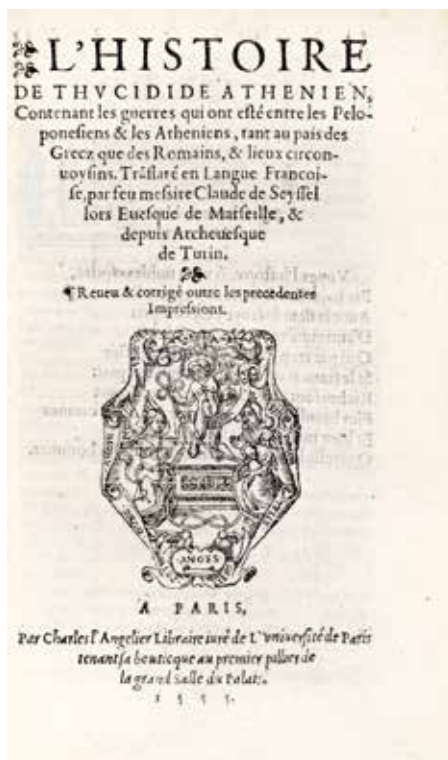 L'HISTOIRE
DE THVCIDIDE ATHENIEN,
Contenant les guerres qui ont esté entre les Pelo-
ponesiens & les Atheniens, tant au païs des
Grecz que des Romains, & lieux circon-
uoysins. Trāslaté en Langue Francoi-
se, par feu messire Claude de Seyssel
lors Euesque de Marseille, &
depuis Archeuesque
de Turin.
¶ Reueu & corrigé outre les precedentes
Impressions.
ANGES
A PARIS,
Par Charles l'Angelier Libraire iuré de L'vniuersité de Paris
tenant sa bouticque au premier pillier de
la grand Salle du Palais.
1555.